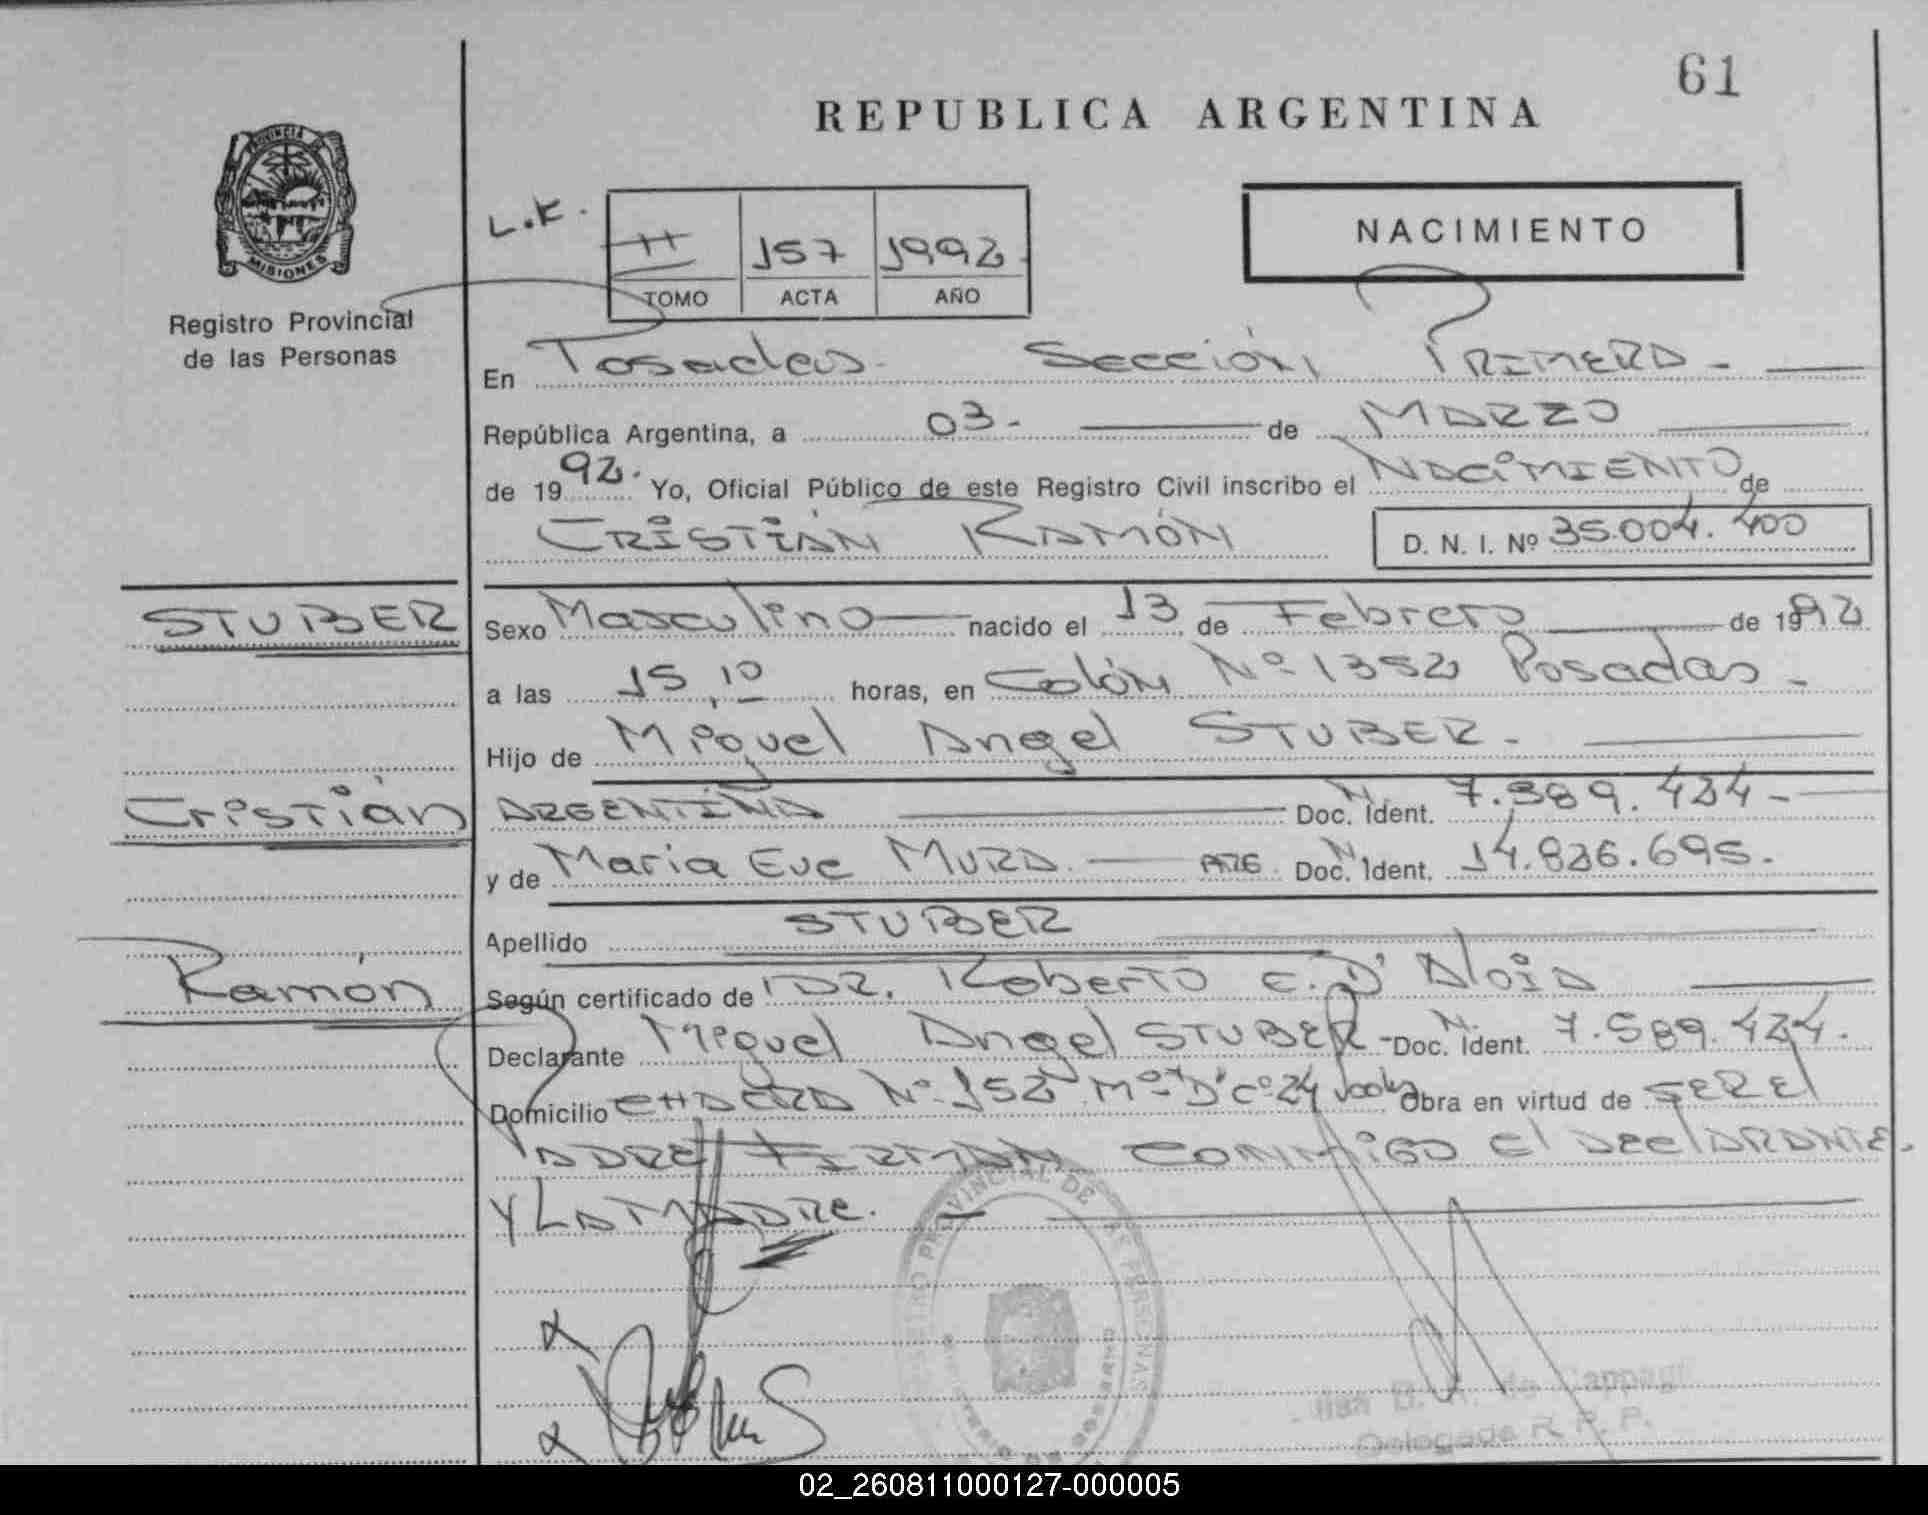 61
REPUBLICA ARGENTINA
PROVINCIA DE
MISIONES
Registro Provincial
de las Personas
L.K.
II 157 1992
TOMO ACTA AÑO
NACIMIENTO
En Posadas. Sección Primera
República Argentina, a 03. de MARZO
de 1992. Yo, Oficial Público de este Registro Civil inscribo el NACIMIENTO de
CRISTIÁN RAMÓN D. N. I. Nº 35.004.400
STUBER
Cristián
Ramón
Sexo Masculino nacido el 13 de Febrero de 1992
a las 15,10 horas, en Colón Nº 1352 Posadas.
Hijo de Miguel Angel STUBER.
ARGENTINA Doc. Ident. 7.589.424
y de Maria Eve MURA. ARG. Doc. Ident. 14.836.695.
Apellido STUBER
Según certificado de DR. Roberto E. D'Aloia
Declarante Miguel Angel STUBER Doc. Ident. 7.589.424.
Domicilio CHACRA Nº 152 Obra en virtud de SER El
PADRE FIRMAN CONMIGO El DEClARANTE
Y LA MADRE.
REGISTRO PROVINCIAL DE LAS PERSONAS
Delegada R. P. P.
02_260811000127-000005